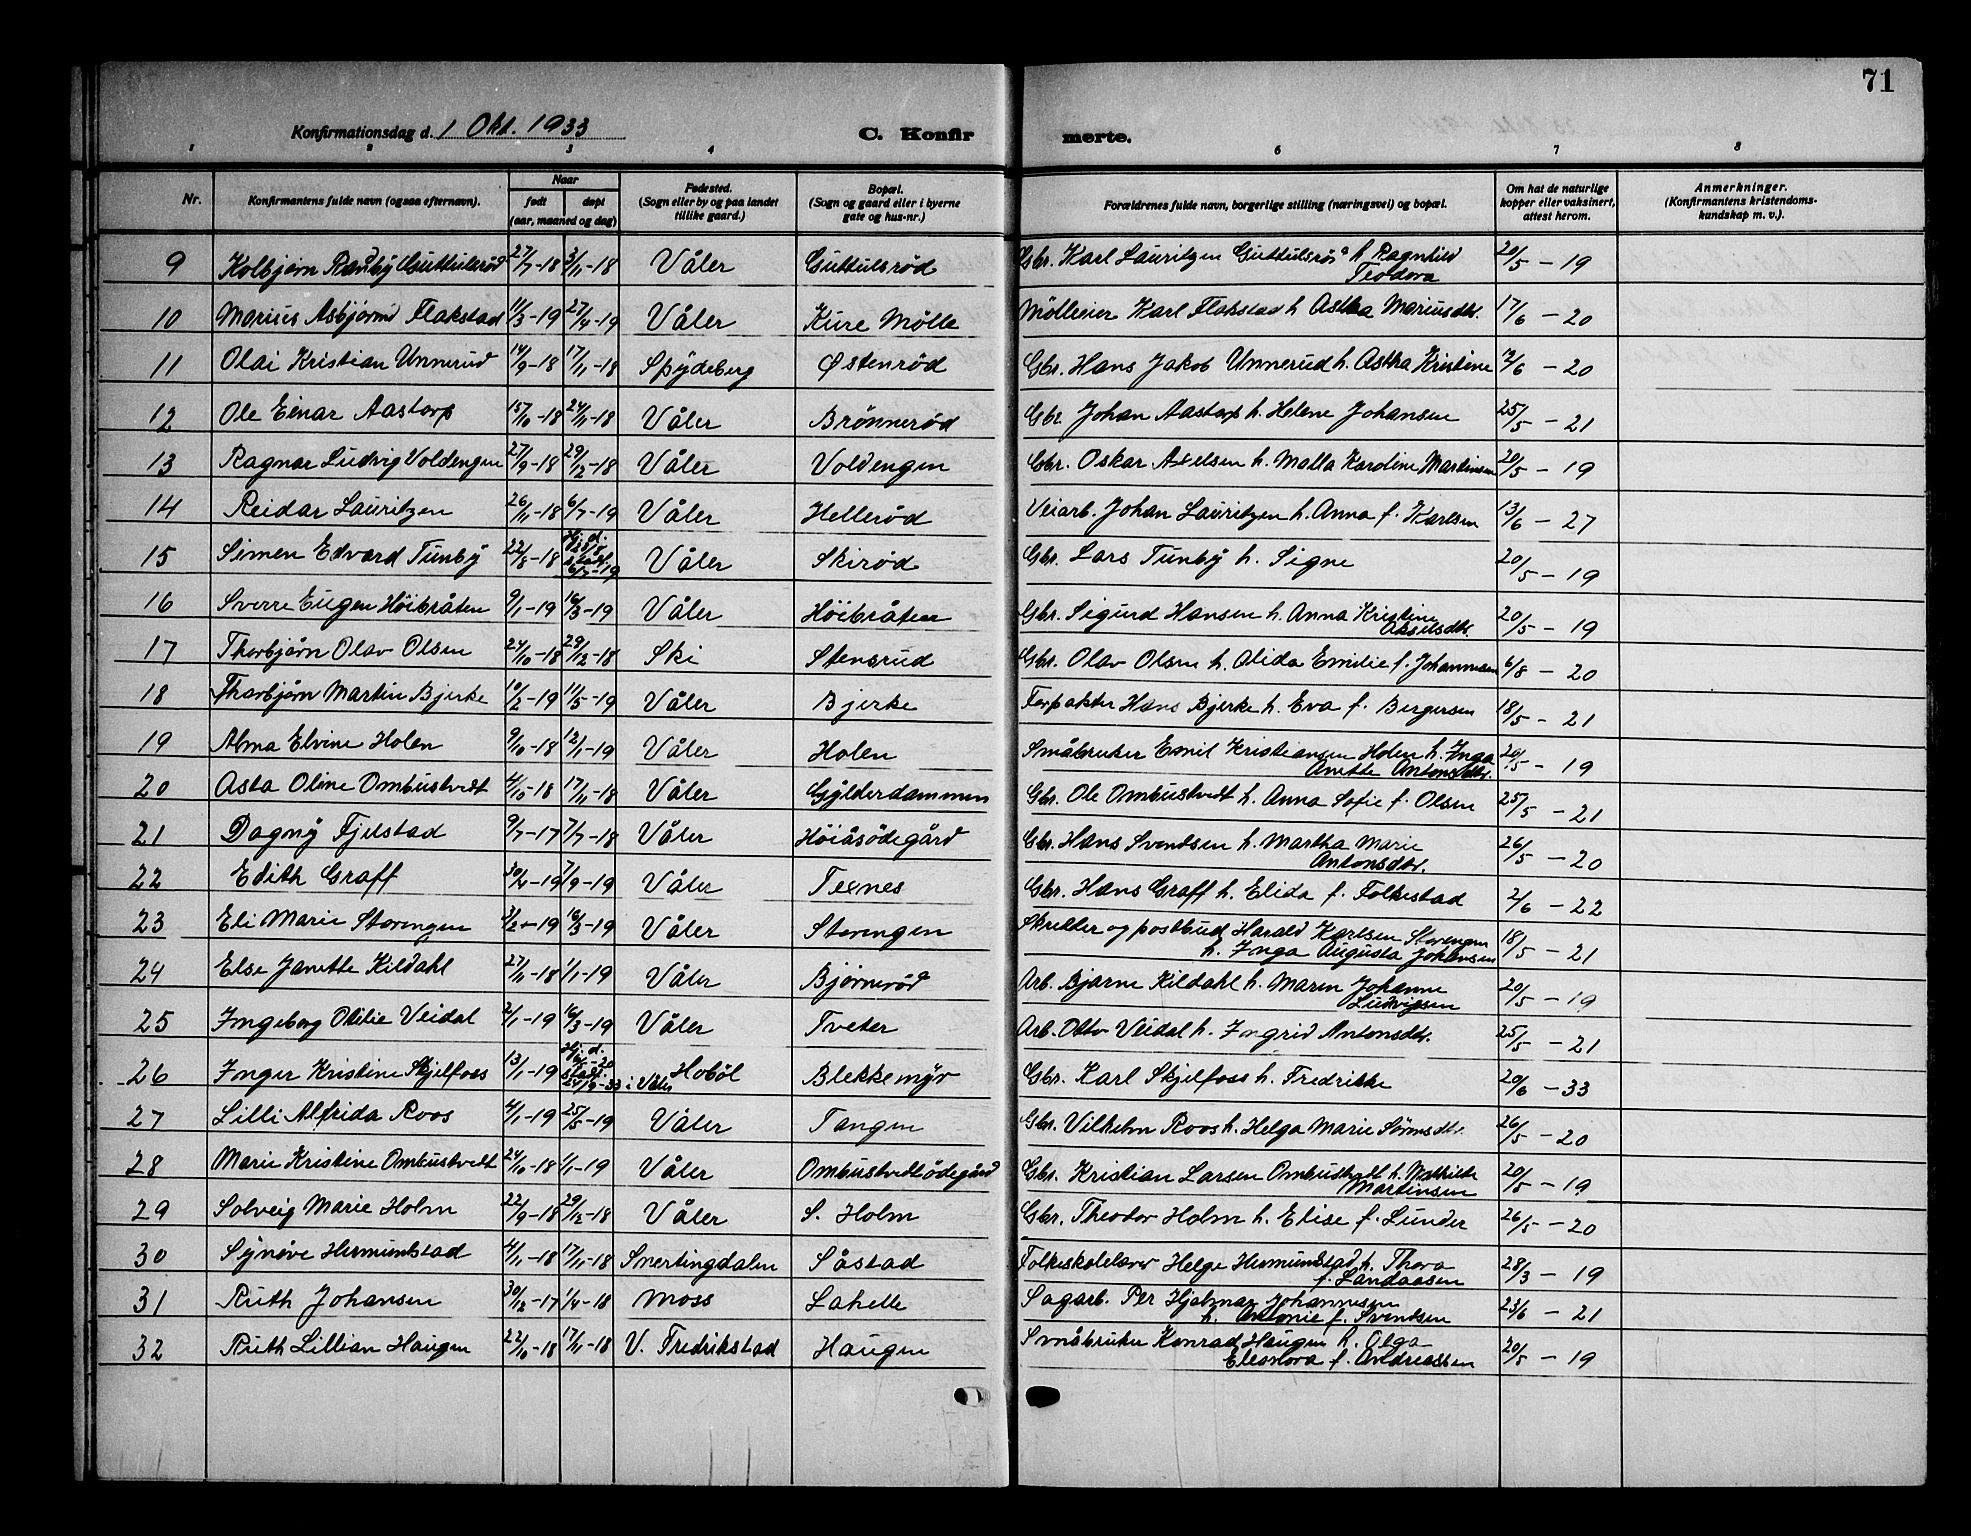 71
Konfirmationsdag d. 1 Okt. 1933 C. Konfir merte.
1 2 3 4 6 7 8
Nr. Konfirmantens fulde navn (ogsaa efternavn). Naar født døpt (aar, maaned og dag) Fødested. (Sogn eller by og paa landet tillike gaard.) Bopæl. (Sogn og gaard eller i byerne gate og hus-nr.) Forældrenes fulde navn, borgerlige stilling (næringsvei) og bopæl. Om hat de naturlige kopper eller vaksinert, attest herom. Anmerkninger. (Konfirmantens kristendoms-kundskap m. v.).
9 Kolbjørn Guttulsrød 27/7-18 3/11-18 Våler Guttulsrød Gbr. Karl Lauritzen Guttulsrød h. Ragnhild Teodora 20/5-19
10 Marius Asbjørn Flakstad 11/3-19 27/4-19 Våler Kure Mølle Mølleeier Karl Flakstad h. Astha Mariusdtr. 17/6-20
11 Olai Kristian Unnerud 14/9-18 17/11-18 Spydeberg Østenrød Gbr. Hans Jakob Unnerud h. Astha Kristine /6-20
12 Ole Einar Aastorp 15/10-18 24/11-18 Våler Brønnerød Gbr. Johan Aastorp h. Helene Johansen 25/5-21
13 Ragnar Ludvig Voldengen 27/9-18 29/12-18 Våler Voldengen Gbr. Oskar Axelsen h. Malla Karoline Martinsen 20/5-19
14 Reidar Lauritzen 26/11-18 6/7-19 Våler Hellerød Veiarb. Johan Lauritzen h. Anna f. Karlsen 13/6-27
15 Simen Edvard Tunby 22/8-18 Hj. d. stadf. 6/7-19 Våler Skirød Gbr. Lars Tunby h. Signe 20/5-19
16 Sverre Eugen Høibråten 9/1-19 16/3-19 Våler Høibråten Gbr. Sigurd Hansen h. Anna Kristine Akselsdtr. 20/5-19
17 Thorbjørn Olav Olsen 24/10-18 29/12-18 Ski Stensrud Gbr. Olav Olsen h. Alida Emilie f. Johannesen 6/8-20
18 Thorbjørn Martin Bjerke 10/2-19 11/5-19 Våler Bjerke Forpakter Hans Bjerke h. Eva f. Bergersen 18/5-21
19 Alma Elvine Holen 9/10-18 12/1-19 Våler Holen Småbruker Emil Kristiansen Holen h. Inga Anette Antonsdtr. 20/5-19
20 Asta Oline Ombustvedt 4/10-18 17/11-18 Våler Gylderdammen Gbr. Ole Ombustvedt h. Anna Sofie f. Olsen 25/5-21
21 Dagny Fjelstad 9/7-17 7/7-18 Våler Høiåsødegård Gbr. Hans Svendsen h. Martha Marie Antonsdtr. 26/5-20
22 Edith Graff 30/4-19 7/9-19 Våler Texnes Gbr. Hans Graff h. Elida f. Folkestad 2/6-22
23 Eli Marie Storengen 3/2-19 16/3-19 Våler Storengen Skredder og postbud Harald Karlsen Storengen h. Inga Augusta Johansen 18/5-21
24 Else Janette Kildahl 27/11-18 1/1-19 Våler Bjørnerød Arb. Bjarne Kildahl h. Maren Johanne Ludvigsen 20/5-19
25 Ingeborg Otilie Veidal 2/1-19 16/3-19 Våler Tveter Arb. Otto Veidal h. Ingrid Antonsdtr. 25/5-21
26 Inger Kristine Skjelfoss 13/1-19 Hj. d. stadf. 24/9-33 i Våler Hobøl Blekkemyr Gbr. Karl Skjelfoss h. Fredrikke 20/6-33
27 Lilli Alfrida Roos 4/1-19 25/5-19 Våler Tangen Gbr. Vilhelm Roos h. Helga Marie Sørnsdtr. 26/5-20
28 Marie Kristine Ombustvedt 24/10-18 1/1-19 Våler Ombustvedtødegård Gbr. Kristian Larsen Ombustvedt h. Mathilde Martinsen 20/5-19
29 Solveig Marie Holm 22/9-18 29/12-18 Våler S. Holm Gbr. Theodor Holm h. Elise f. Lunder 26/5-20
30 Synøve Hermundstad 4/11-18 17/11-18 Snertingdalen Såstad Folkeskolelærer Helge Hermundstad h. Thora f. Landaasen 28/3-19
31 Ruth Johansen 30/12-17 1/4-18 Moss Lahelle Sagarb. Per Hjelmar Johannesen h. Antonie f. Svendsen 23/6-21
32 Ruth Lillian Haugen 22/10-18 17/11-18 V. Fredrikstad Haugen Småbruker Konrad Haugen h. Olga Eleonora f. Andreassen 20/5-19